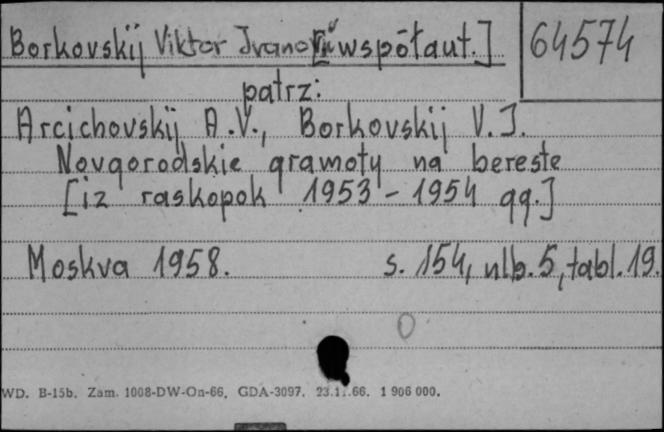 Borkovskij Viktor Ivanovič [współaut.] 64574
patrz:
Arcichovskij A.V., Borkovskij V.I.
Novgorodskie gramoty na bereste
[iz raskopok 1953-1954 gg.]
Moskva 1958. s. 154, nlb. 5, tabl. 19.
WD. B-15b. Zam. 1008-DW-On-66, GDA-3097. 66. 1 906 000.